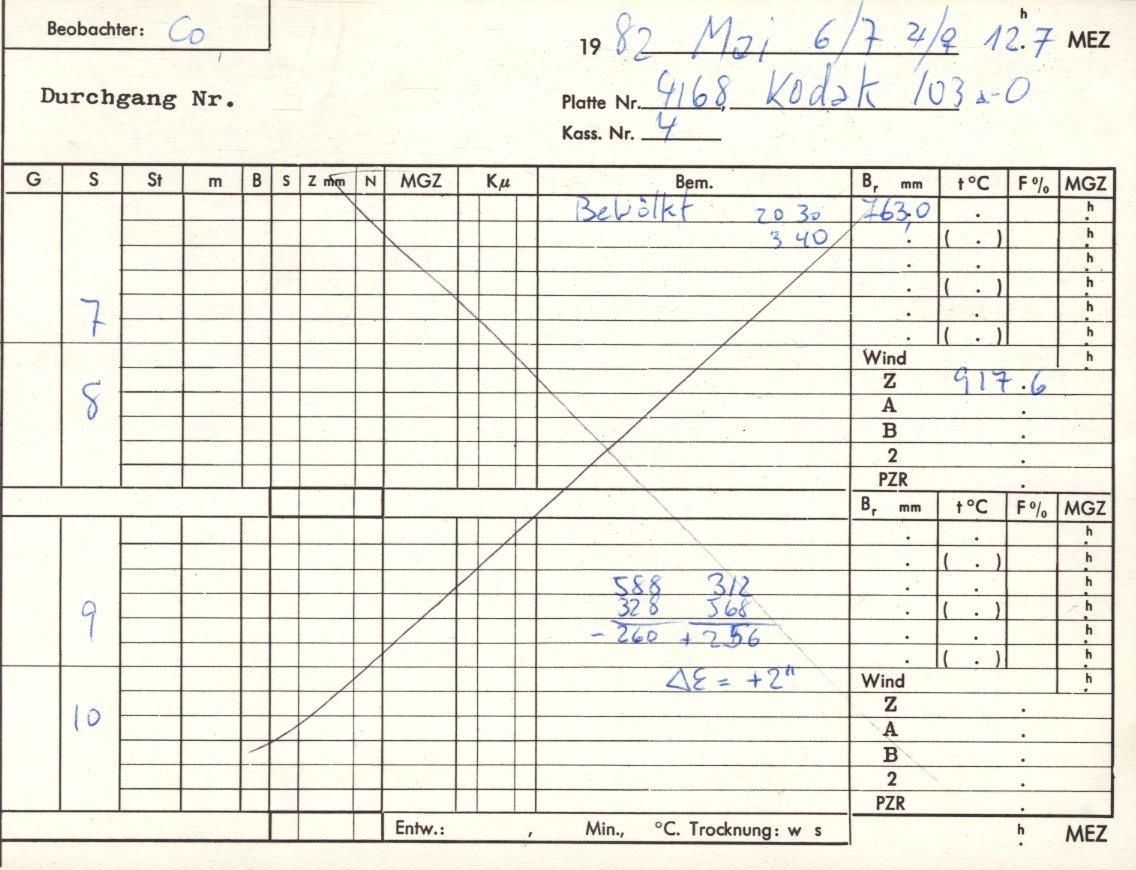 Beobachter: Co
19 82 Mai 6/7 12.h7 MEZ
Durchgang Nr.
Platte Nr. 4168, Kodak 103a-O
Kass. Nr. 4
G S St m B S Z mm N MGZ Kμ Bem. Br mm t °C F% MGZ
Bewölkt 20 30 763,0 . h
3 40 . ( . ) h
. . h
. ( . ) h
7 . . h
. ( . )
Wind h
8 Z 917.6
A .
B .
2 .
PZR .
Br mm t °C F% MGZ
. . h
. ( . ) h
588 312 . . h
9 328 568 . ( . ) h
- 260 + 256 . . h
. ( . ) h
ΔE = +2" Wind h
Z .
10 A .
B .
2 .
PZR .
Entw.: , Min., °C. Trocknung: w s h. MEZ